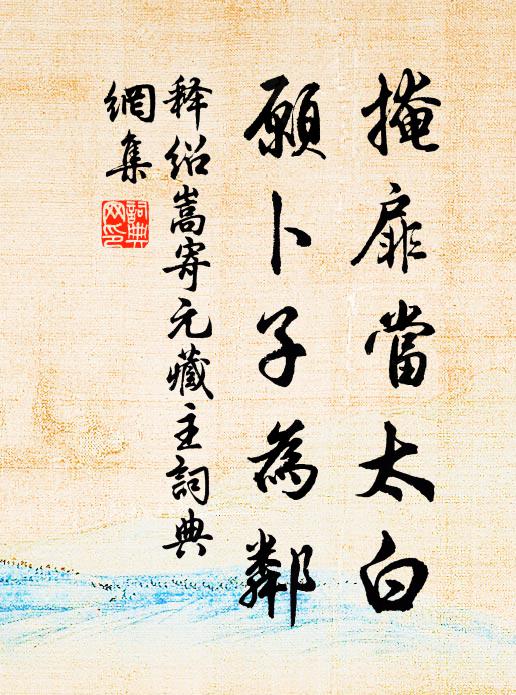 掩扉當太白
願卜子為鄰
释绍嵩寄元藏主詞典
網集
詞典
网印